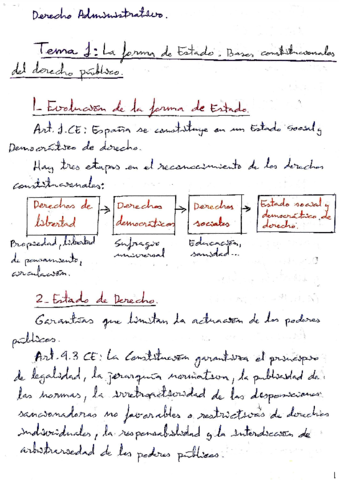 Derecho Administrativo.
Tema 1: La forma de Estado. Bases constitucionales
del derecho público.
1- Evolución de la forma de Estado.
Art. 1.CE: España se constituye en un Estado social y
Democrático de derecho.
Hay tres etapas en el reconocimiento de los derechos
constitucionales:
Derechos de
libertad
Derechos
democráticos
Derechos
sociales
Estado social y
democrático de
derecho.
Propiedad, libertad
de pensamiento,
circulación.
Sufragio
universal
Educación,
sanidad...
2- Estado de Derecho.
Garantías que limitan la actuación de los poderes
públicos.
Art. 9.3 CE: La Constitución garantiza el principio
de legalidad, la jerarquía normativa, la publicidad de
las normas, la irretroactividad de las disposiciones
sancionadoras no favorables o restrictivas de derechos
individuales, la responsabilidad y la interdicción de
arbitrariedad de los poderes públicos.
1